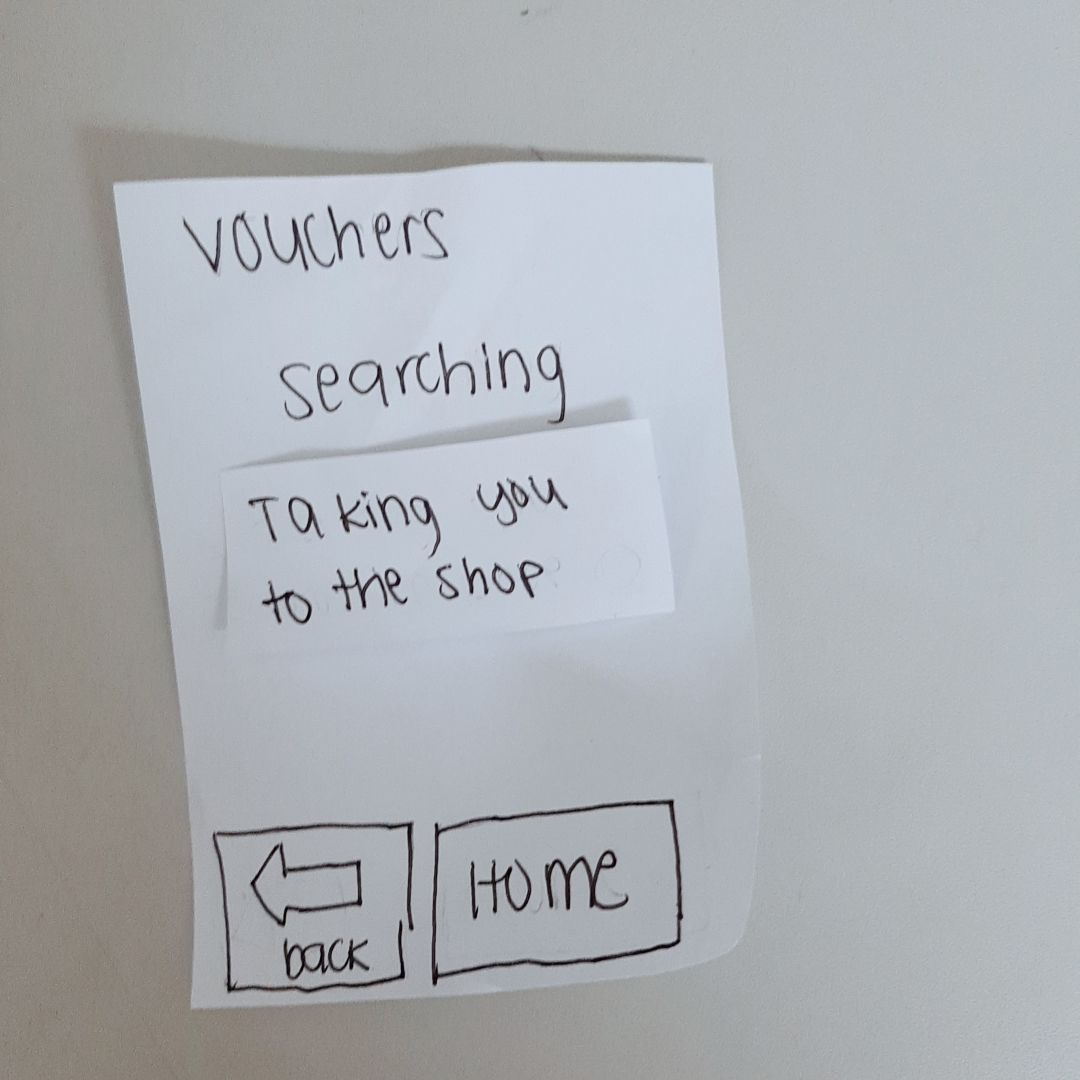 vouchers
searching
Taking you
to the shop
back
Home